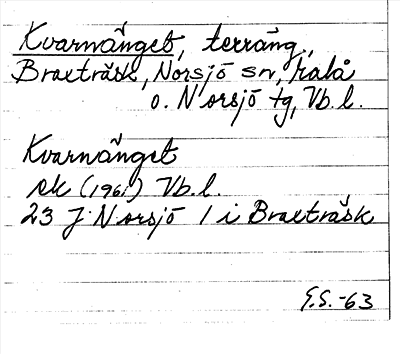 Kvarnänget, terräng.,
Braxträsk, Norsjö sn, Malå
o. Norsjö tg, Vb. l.
Kvarnänget
ek (1961) Vb. l.
23 J Norsjö 1 i Braxträsk
G.S. -63